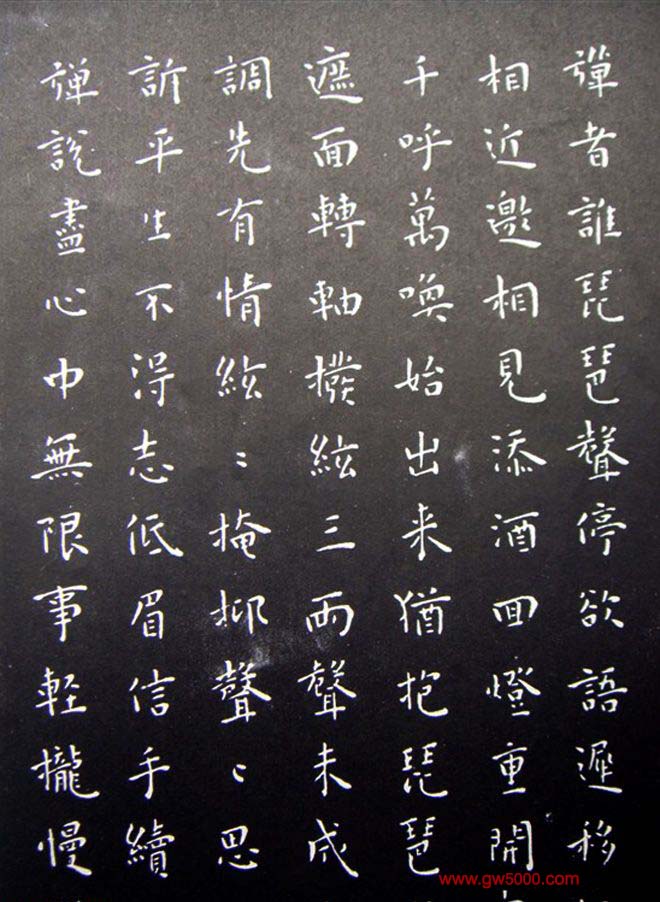 彈者誰琵琶聲停欲語遲移
相近邀相見添酒回燈重開
千呼萬喚始出来猶抱琵琶
遮面轉軸撥絃三兩聲未成
調先有情絃〻掩抑聲〻思
訴平生不得志低眉信手續
彈說盡心中無限事軽攏慢
www.gw5000.com